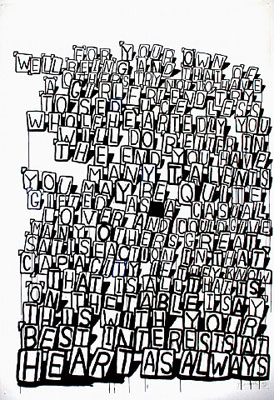 FOR YOUR OWN
WELL BEING AND THAT OF
OTHERS TRY NOT TO HAVE
A GIRLFRIEND TRY
TO SEDUCE LESS
WHOLEHEARTEDLY YOU
WILL DO BETTER IN
THE END YOU HAVE
MANY TALENTS
YOU MAY BE QUITE
GIFTED AS A CASUAL
LOVER AND COULD GIVE
MANY OTHERS GREAT
SATISFACTION IN THAT
CAPACITY IF THEY KNOW
THAT IS ALL THAT IS
ON THE TABLE I SAY
THIS WITH YOUR
BEST INTERESTS AT
HEART AS ALWAYS